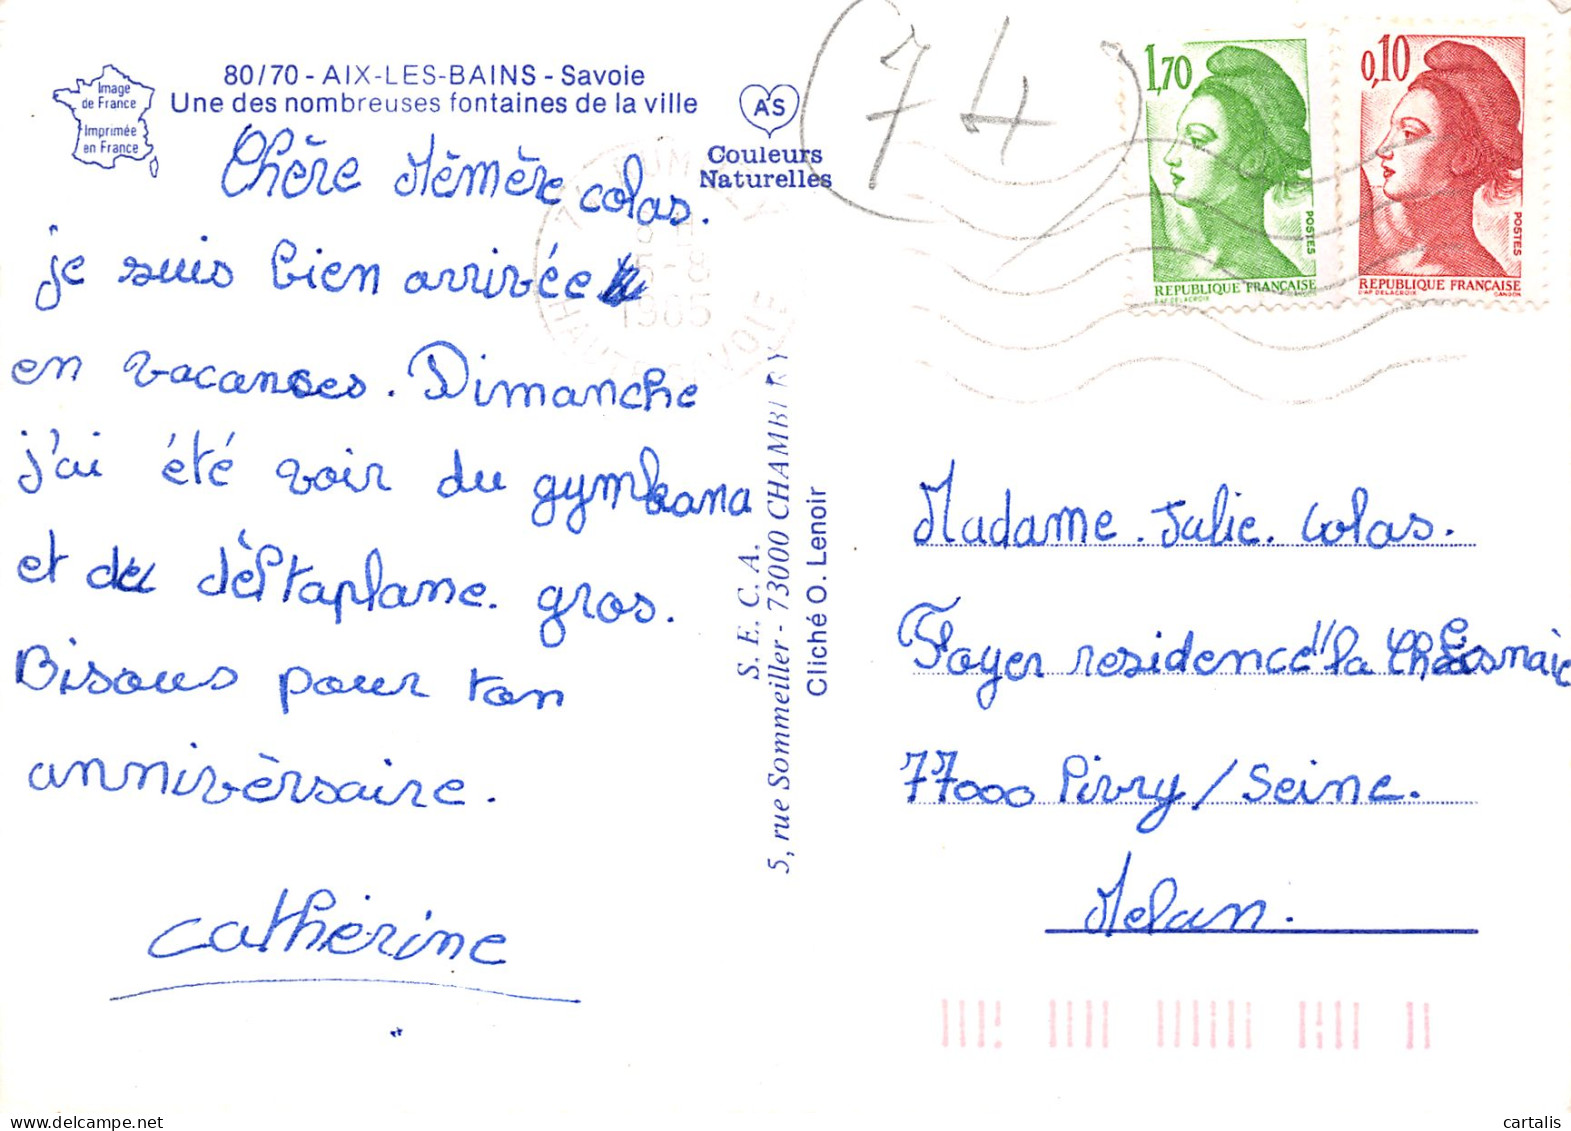 80/70 - AIX-LES-BAINS - Savoie
Une des nombreuses fontaines de la ville
Image
de France
Imprimée
en France
AS
Couleurs
Naturelles
(74)
1,70
POSTES
REPUBLIQUE FRANÇAISE
D'AP. DELACROIX
0,10
POSTES
REPUBLIQUE FRANÇAISE
D'AP. DELACROIX GANDON
5-8
1985
Chère Mèmère colas.
je suis bien arrivée
en vacances. Dimanche
j'ai été voir du gymkana
et du dèltaplane. gros.
Bisous pour ton
annivèrsaire.
cathérine
S. E. C. A.
5, rue Sommeiller - 73000 CHAMBERY
Cliché O. Lenoir
Madame. Julie. Colas.
Foyer residence "la Chesnaie
77000 Pivry/Seine.
Melun.
cartalis.com